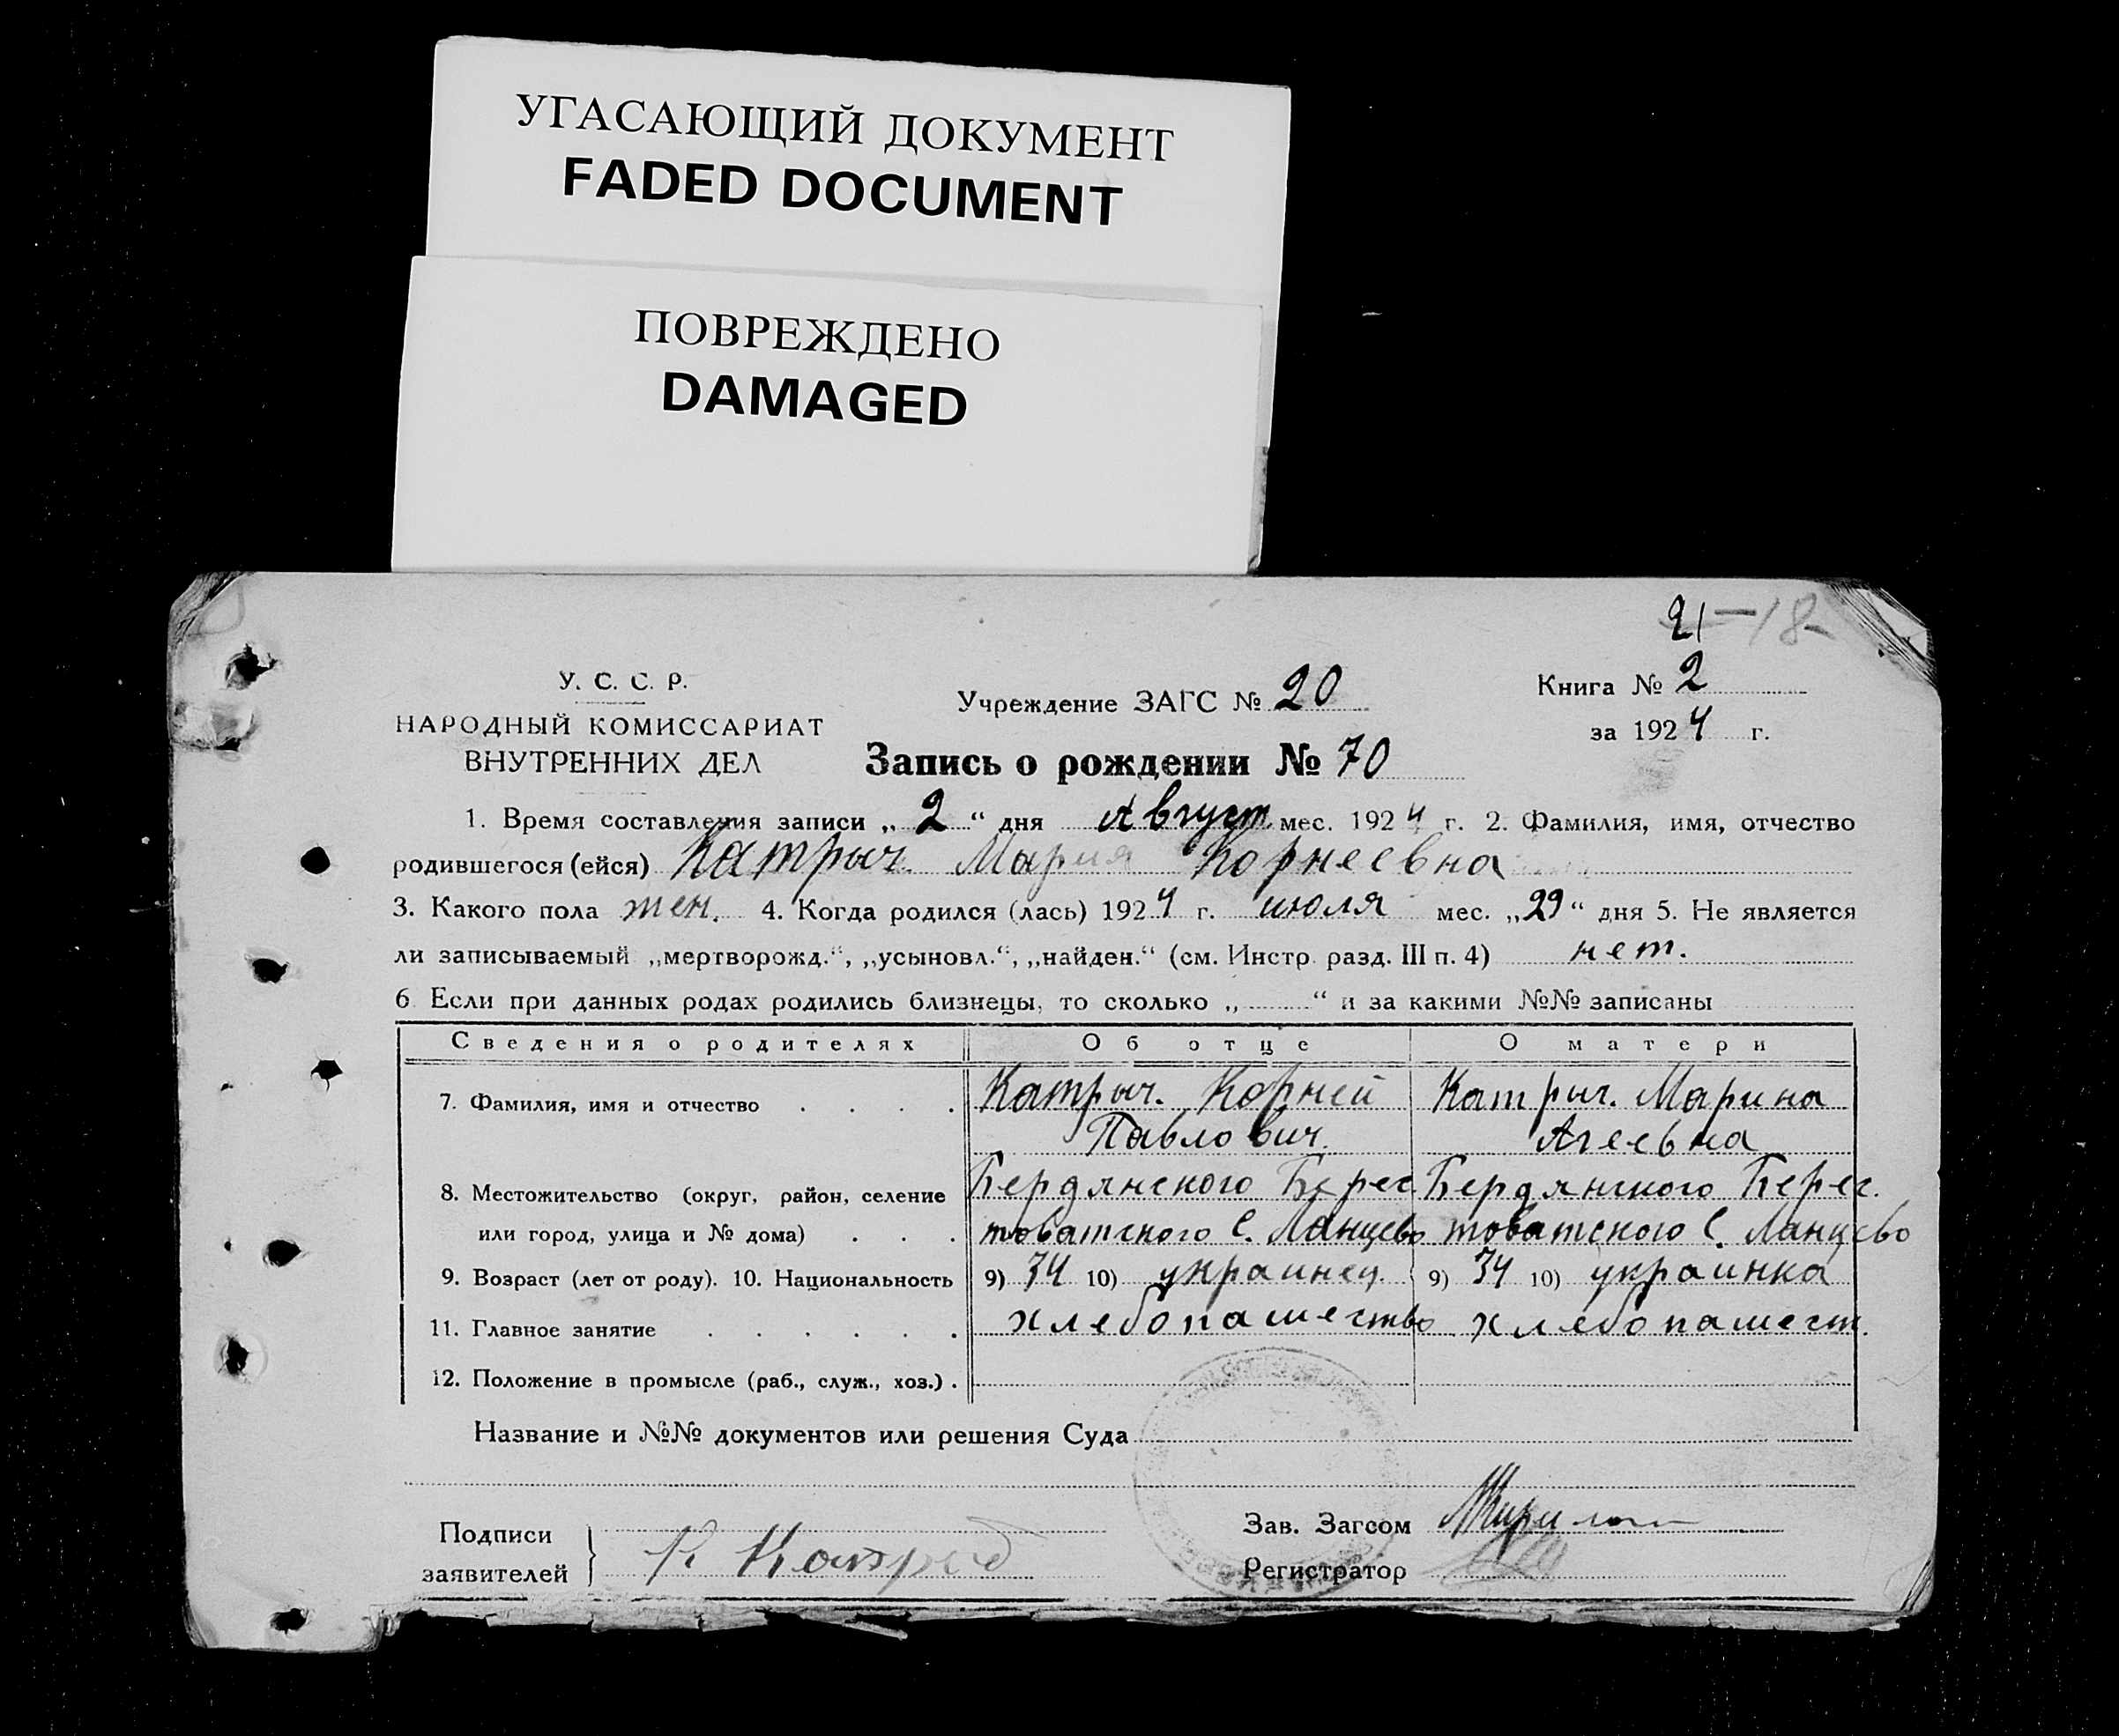 УГАСАЮЩИЙ ДОКУМЕНТ
FADED DOCUMENT
ПОВРЕЖДЕНО
DAMAGED
21 — 18
У. С. С. Р.
НАРОДНЫЙ КОМИССАРИАТ
ВНУТРЕННИХ ДЕЛ
Учреждение ЗАГС № 20
Книга № 2
за 1924 г.
Запись о рождении № 70
1. Время составления записи „ 2 “ дня Август мес. 1924 г. 2. Фамилия, имя, отчество
родившегося (ейся) Катрыч. Мария Корнеевна
3. Какого пола жен. 4. Когда родился (лась) 1924 г. июля мес. „29“ дня 5. Не является
ли записываемый „мертворожд.“, „усыновл.“, „найден.“ (см. Инстр. разд. III п. 4) нет.
6 Если при данных родах родились близнецы, то сколько „ “ и за какими №№ записаны
Сведения о родителях Об отце О матери
7. Фамилия, имя и отчество . . . . Катрыч. Корней Катрыч. Марина
Павлович. Агеевна
8. Местожительство (округ, район, селение Бердянского Берес Бердянского Берес.
или город, улица и № дома) . . . товатского с. Ланцево товатского с. Ланцево
9. Возраст (лет от роду). 10. Национальность 9) 34 10) украинец. 9) 34 10) украинка
11. Главное занятие . . . . . . хлебопашество хлебопашест.
12. Положение в промысле (раб., служ., хоз.) .
Название и №№ документов или решения Суда
Подписи
заявителей
К Катрыч
Зав. Загсом
Регистратор